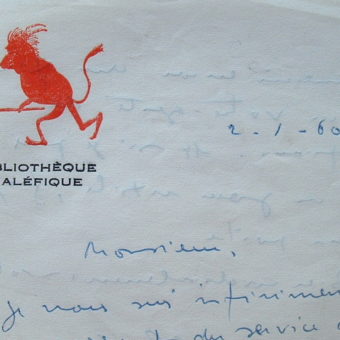 2-1-60
BLIOTHÈQUE
ALÉFIQUE
Monsieur,
Je vous suis infiniment
du service